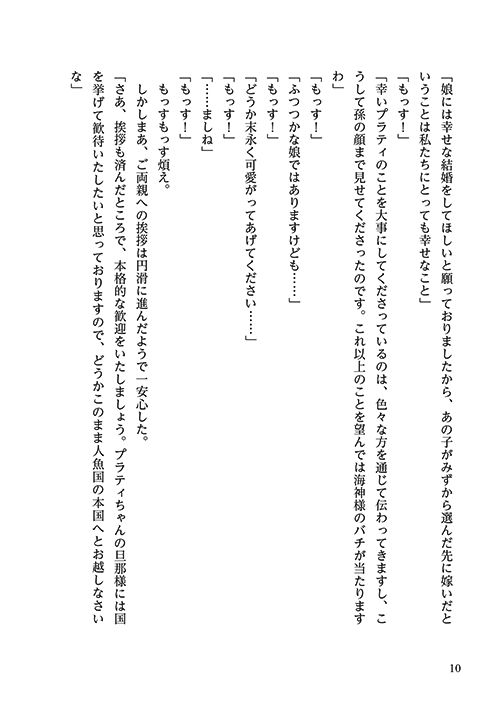 「娘には幸せな結婚をしてほしいと願っておりましたから、あの子がみずから選んだ先に嫁いだと
いうことは私たちにとっても幸せなこと」
「もっす！」
「幸いプラティのことを大事にしてくださっているのは、色々な方を通じて伝わってきますし、こ
うして孫の顔まで見せてくださったのです。これ以上のことを望んでは海神様のバチが当たります
わ」
「もっす！」
「ふつつかな娘ではありますけども……」
「もっす！」
「どうか末永く可愛がってあげてください……」
「もっす！」
「……ましね」
「もっす！」
もっすもっす煩え。
しかしまあ、ご両親への挨拶は円滑に進んだようで一安心した。
「さあ、挨拶も済んだところで、本格的な歓迎をいたしましょう。プラティちゃんの旦那様には国
を挙げて歓待いたしたいと思っておりますので、どうかこのまま人魚国の本国へとお越しなさい
な」
10